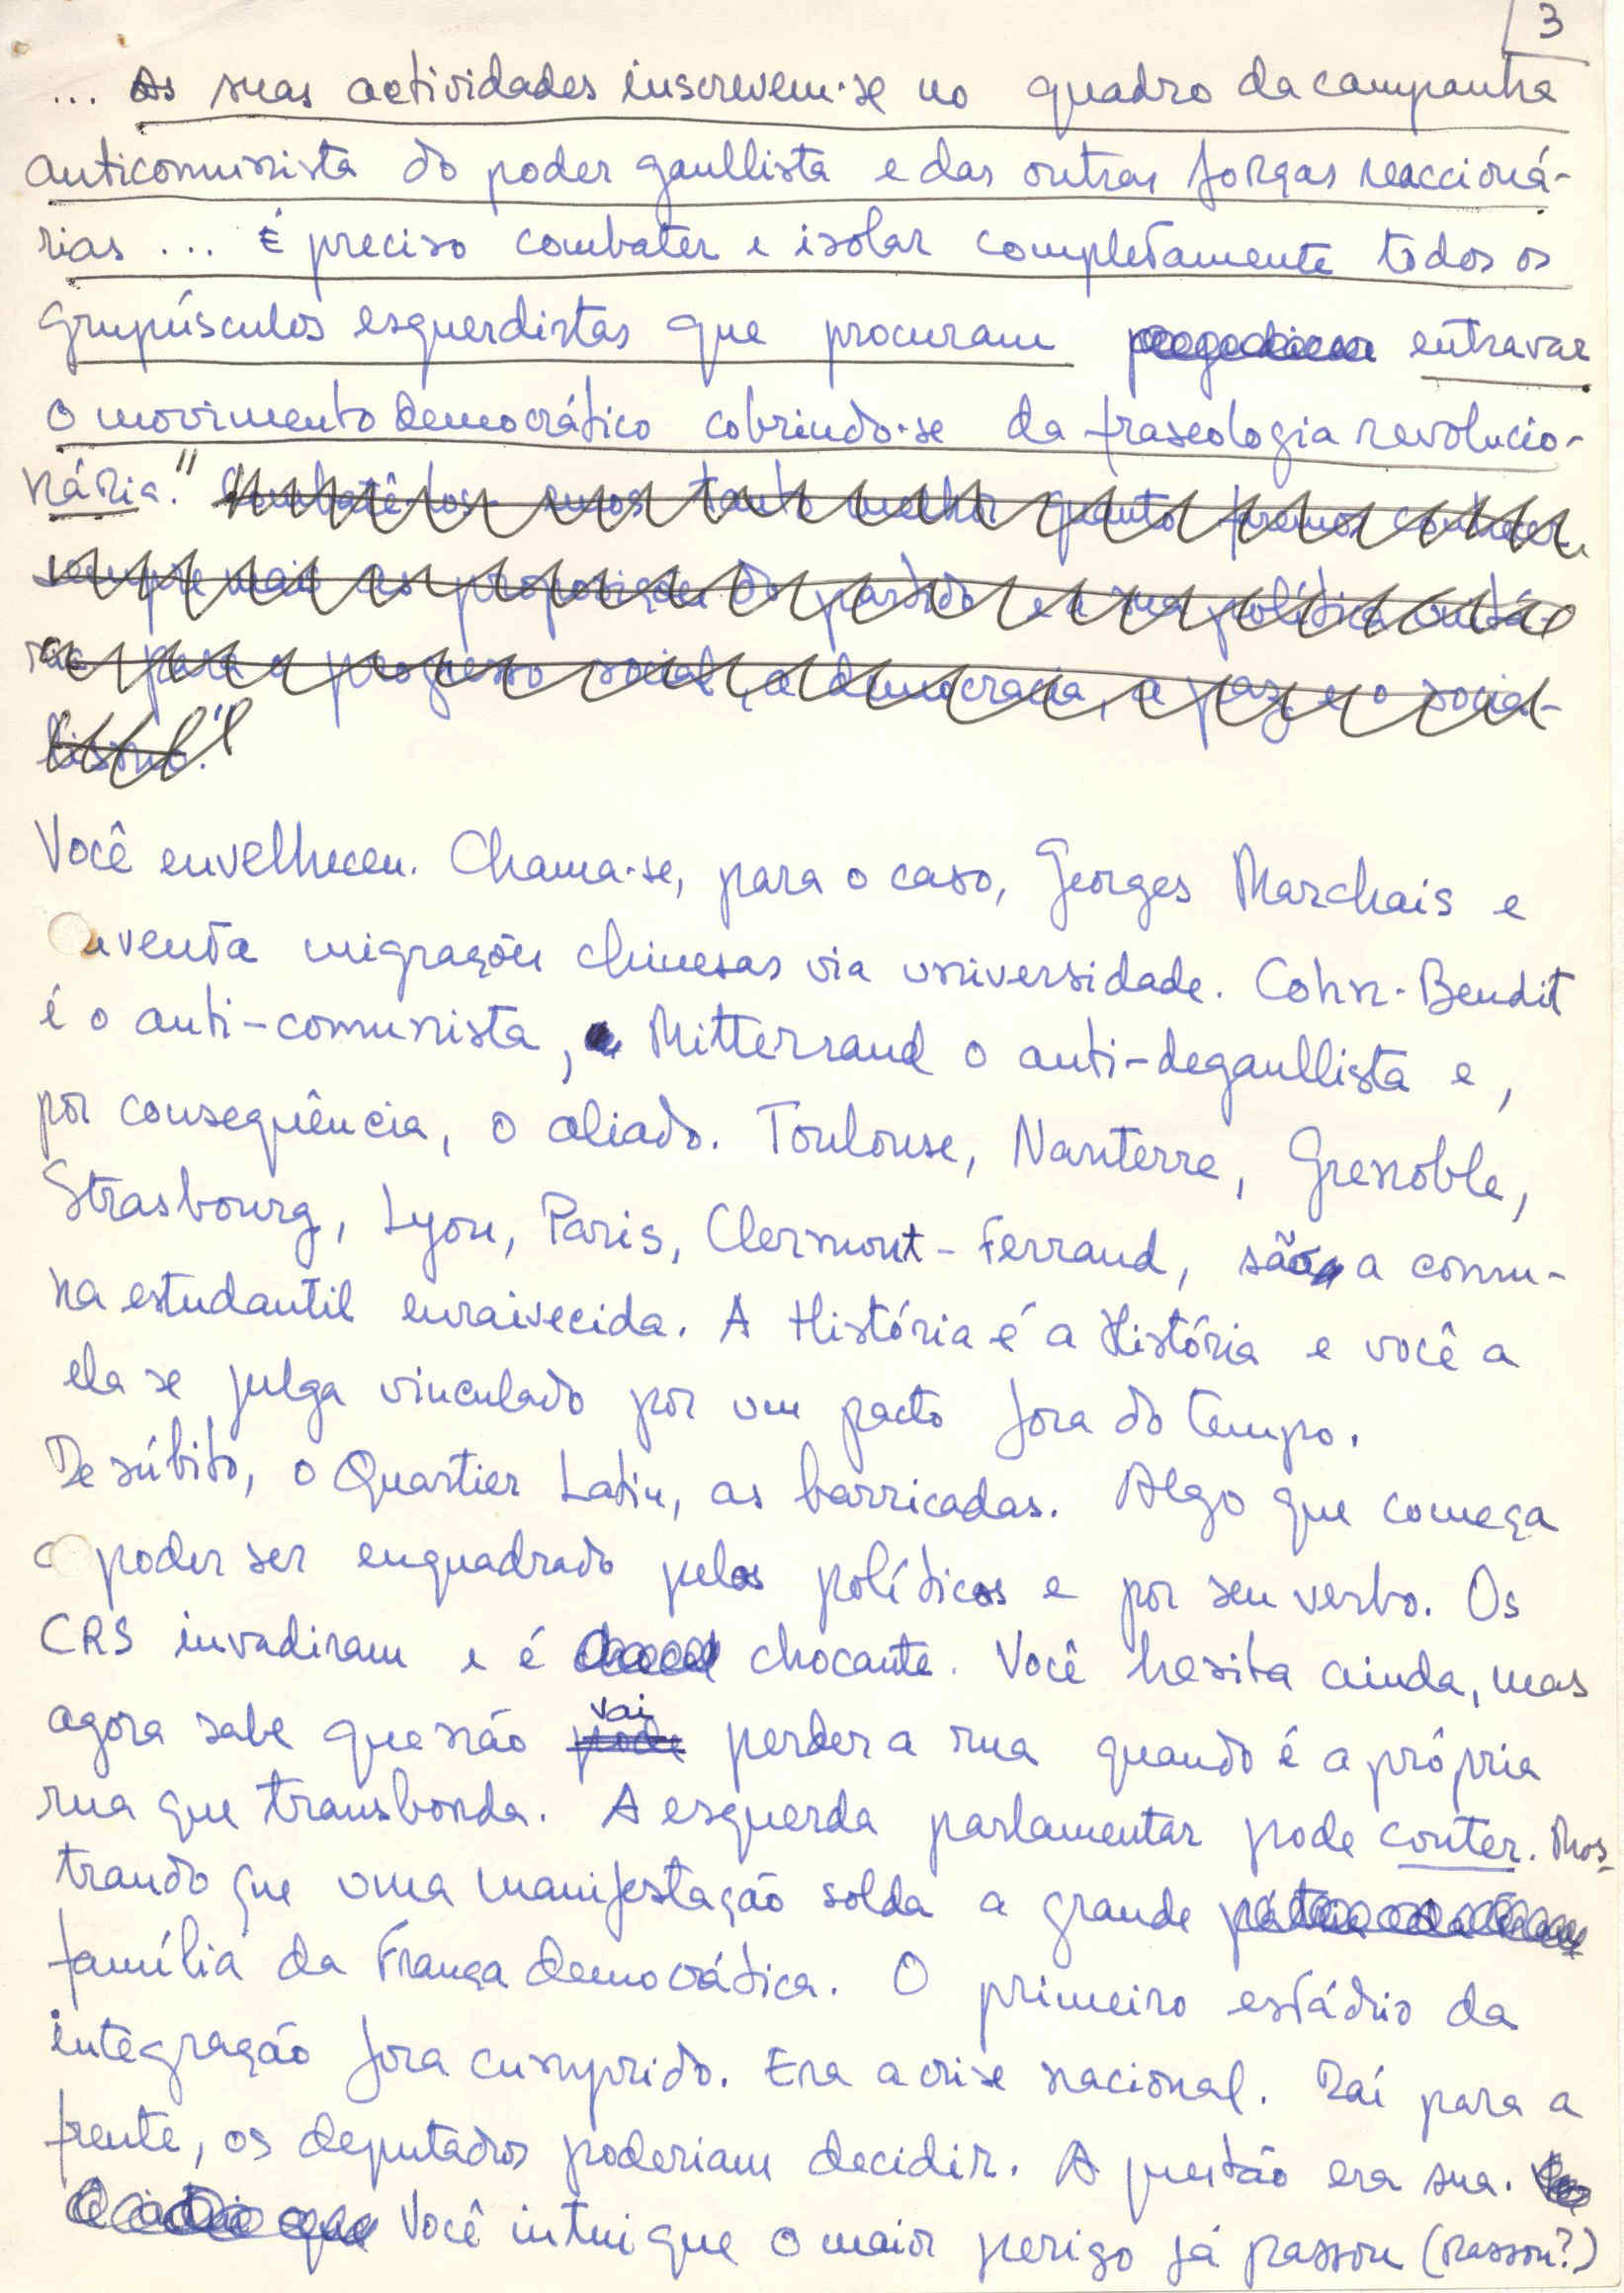 3
... As suas actividades inscrevem-se no quadro da campanha
anticomunista do poder gaullista e das outras forças reaccioná-
rias ... É preciso combater e isolar completamente todos os
grupúsculos esquerdistas que procuram entravar
o movimento democrático cobrindo-se da fraseologia revolucio-
nária." Combatê-los-emos tanto melhor quanto faremos conhecer
sempre mais as proposições do partido e a sua política unitá-
ria para o progresso social, a democracia, a paz e o socia-
lismo."
Você envelheceu. Chama-se, para o caso, Georges Marchais e
inventa migrações chinesas via universidade. Cohn-Bendit
é o anti-comunista, Mitterrand o anti-degaullista e,
por consequência, o aliado. Toulouse, Nanterre, Grenoble,
Strasbourg, Lyon, Paris, Clermont-Ferrand, são a comu-
na estudantil enraivecida. A História é a História e você a
ela se julga vinculado por um pacto fora do tempo.
De súbito, o Quartier Latin, as barricadas. Algo que começa
a poder ser enquadrado pelos políticos e por seu verbo. Os
CRS invadiram e é chocante. Você hesita ainda, mas
agora sabe que não pode vai perder a rua quando é a própria
rua que transborda. A esquerda parlamentar pode conter. Mos-
trando que uma manifestação solda a grande
família da França democrática. O primeiro estádio da
integração fora cumprido. Era a crise nacional. Daí para a
frente, os deputados poderiam decidir. A questão era sua.
Você intui que o maior perigo já passou (passou?)